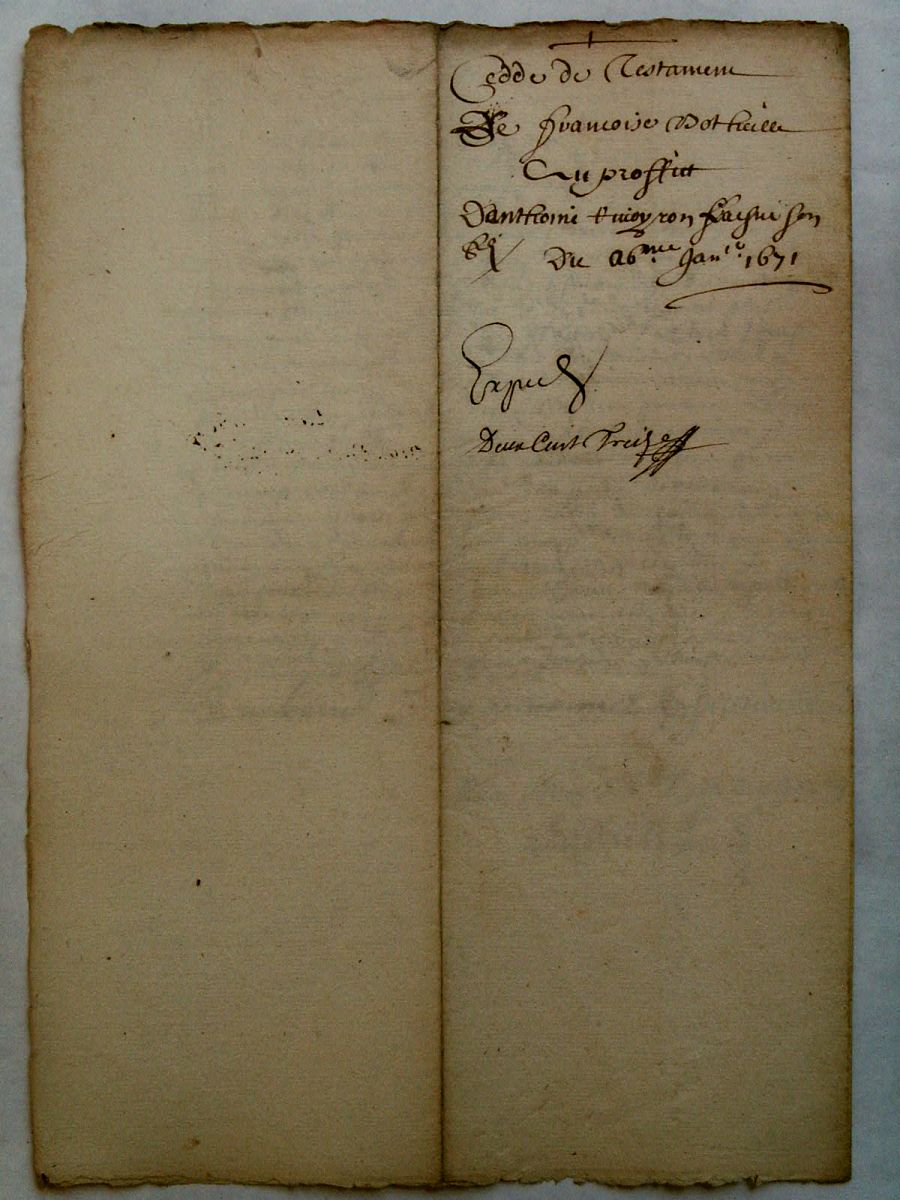 Cedde de Testament
De francoise Botheille
Au proffict
D'anthoine son
Du 26me Janer 1671
Expedie
Deux Cent Treize